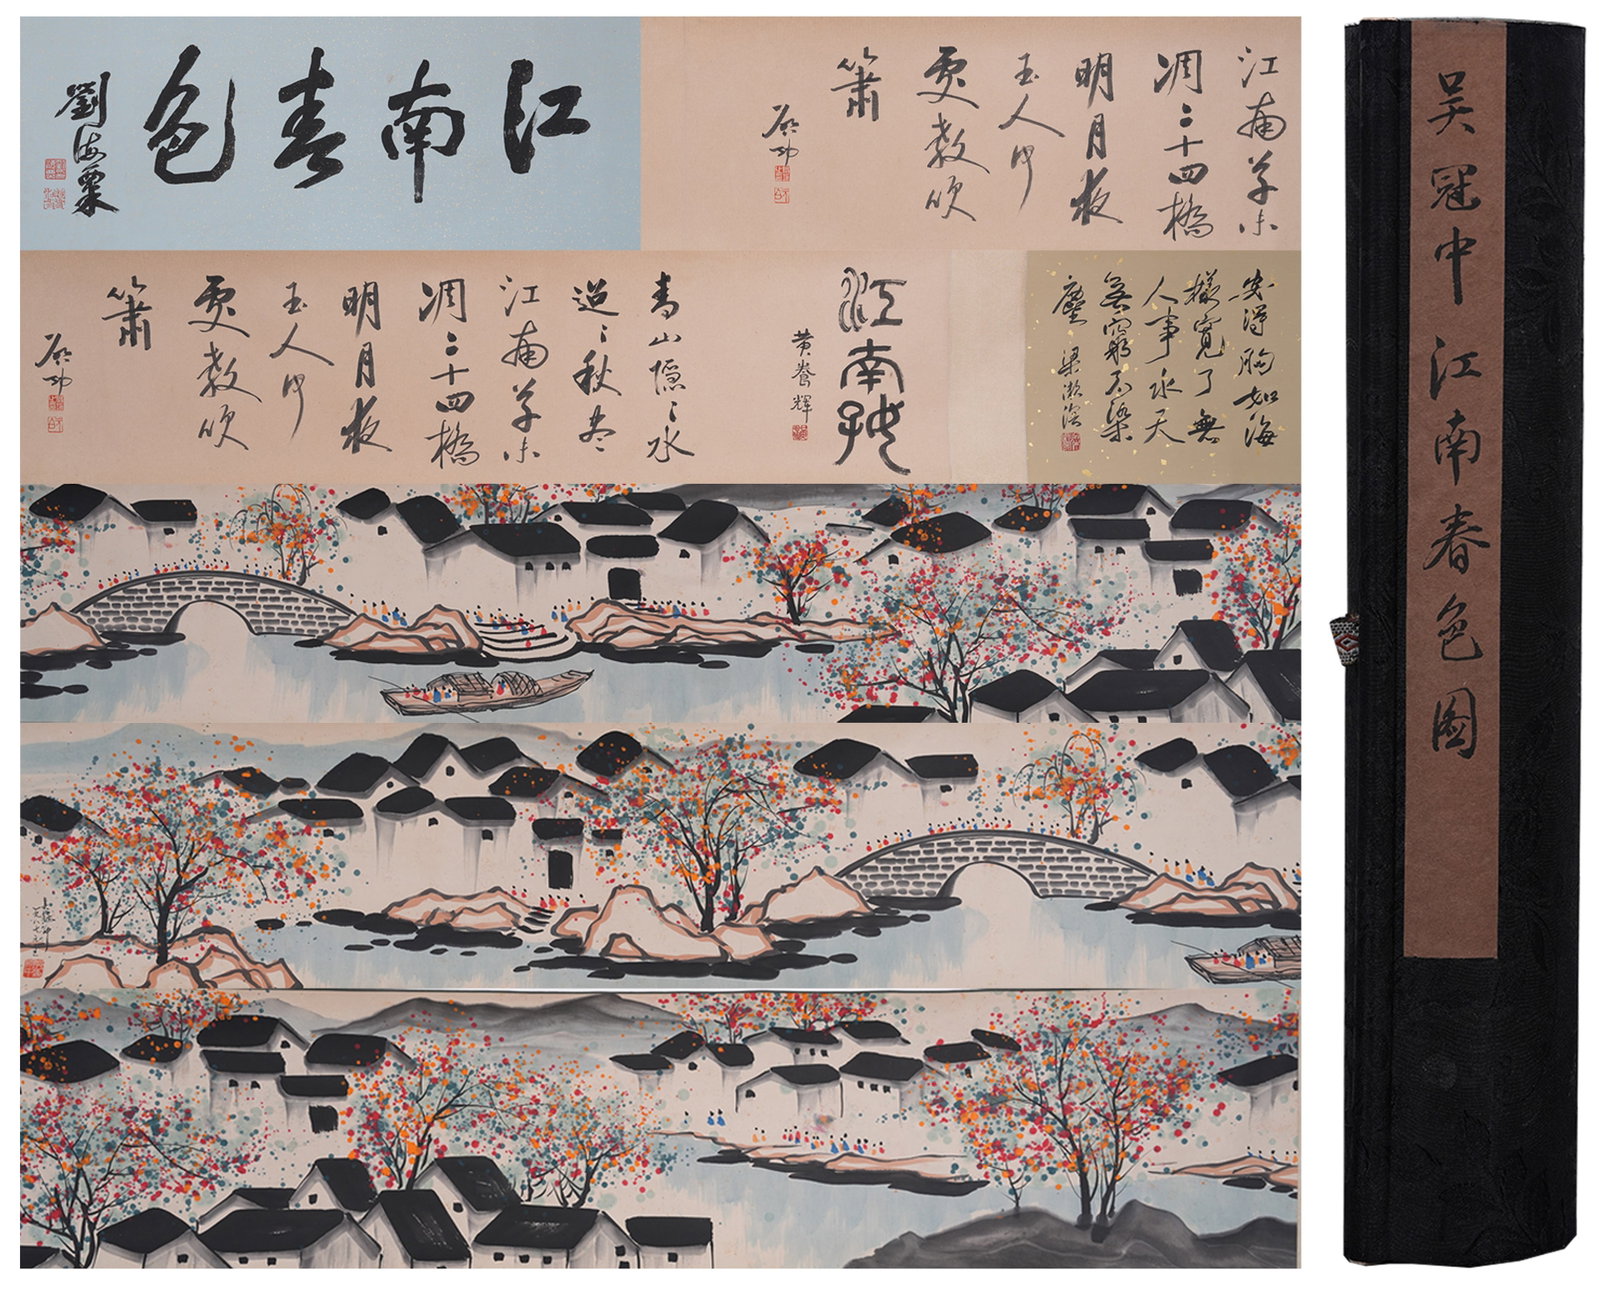 江南春色
劉海粟
江南草未
凋二十四橋
明月夜
玉人何
處教吹
簫
啟功
安得胸如海
樣寬了無
人事水天
無窮不染
塵 梁漱溟
江南
黄養輝
青山隱〻水
迢〻秋盡
江南草未
凋二十四橋
明月夜
玉人何
處教吹
簫
啟功
吴冠中江南春色图